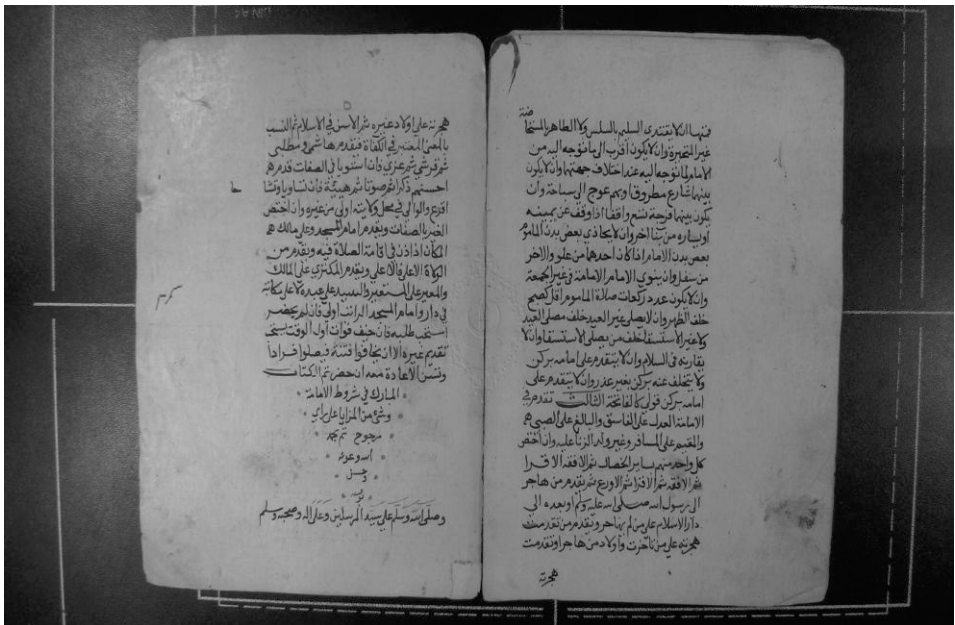 فمنها ان لا يقتدي السليم بالسلس ولا الطاهر بالمستحاضة
غير المتحيرة وان لا يكون اقرب الى ما توجه اليه من
الامام لما توجه اليه عند اختلاف جهتهما وان لا يكون
بينهما شارع مطروق او يعوج الى سباحة وان
يكون بينهما فرجة تسع واقفا اذا وقف عن يمينه
او يساره من بنا اخر وان لا يحاذي بعض بدن الماموم
بعض بدن الامام اذا كان احدهما من علو والاخر
من سفل وان ينوي الامام الامامة في غير الجمعة
وان لا يكون عدد ركعات صلاة الماموم اقل كصبح
خلف الظهر وان لا يصلي غير العيد خلف مصلي العيد
ولا غير الاستسقا خلف من يصلي الاستسقا وان لا
يقارنه في السلام وان لا يتقدم على امامه بركن
ولا يتخلف عنه بركن بغير عذر وان لا يتقدم على
امامه بركن قولي كالفاتحة الثالث تقدم في
الامامة العدل على الفاسق والبالغ على الصبي
والمقيم على المسافر وغير ولد الزنا عليه وان اختص
كل واحد منهم بساير الخصال ثم الافقه الاقرا
ثم الافقه ثم الاقرا ثم الاورع ثم يقدم من هاجر
الى رسول الله صلى الله عليه وسلم او بعده الى
دار الاسلام على من لم يهاجر وتقدم من تقدمت
هجرته على من تاخرت واولاد من هاجر او تقدمت
هجرته
هجرته على اولاد غيره ثم الاسن في الاسلام ثم النسب
بالمعنى المعتبر في الكفاة فتقدم هاشمي ومطلبي
ثم قرشي ثم عربي فان استويا في الصفات قدم
احسنهم ذكرا ثم صوتا ثم هيئة فان تساويا وتشاحا
اقرع والوالي في محل ولايته اولى من غيره وان اختص
الغير بالصفات ويقدم امام المسجد وعلى مالك
المكان اذا اذن في اقامة الصلاة فيه ويقدم من
الولاة الاعلى فالاعلى ويقدم المكتري على المالك
والمعير على المستعير والسيد على عبده لا على مكاتبه
في داره وامام المسجد الراتب اولى فان لم يحضر
استحب طلبه فان خيف فوات اول الوقت يستحب
تقديم غيره الا ان يخافوا فتنة فيصلوا فرادا
وتسن الاعادة معه ان حضر تم الكتاب
المبارك في شروط الامامة
وشئ من المزايا على راي
مرجوح تم بحمد
الله وعونه
وصلى الله وسلم على سيد المرسلين وعلى اله وصحبه وسلم